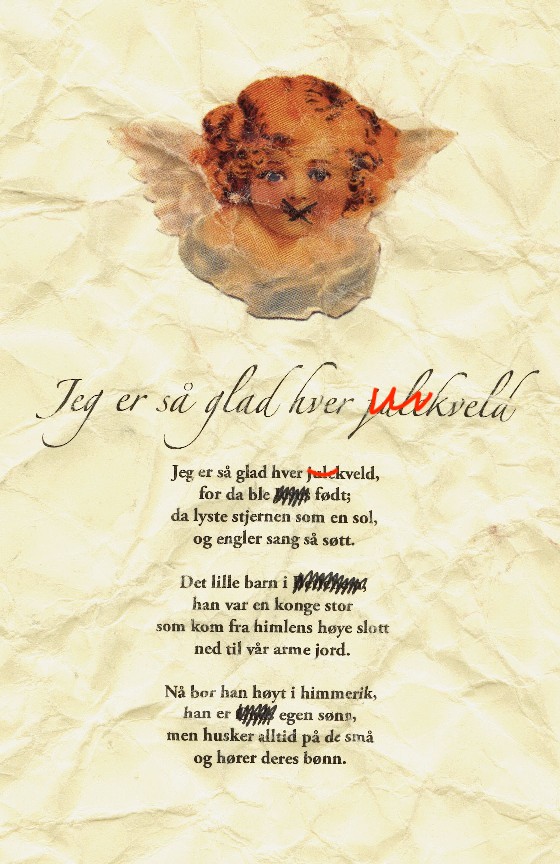 Jeg er så glad hver julekveld
Jeg er så glad hver julekveld,
for da ble født;
da lyste stjernen som en sol,
og engler sang så søtt.
Det lille barn i
han var en konge stor
som kom fra himlens høye slott
ned til vår arme jord.
Nå bor han høyt i himmerik,
han er egen sønn,
men husker alltid på de små
og hører deres bønn.